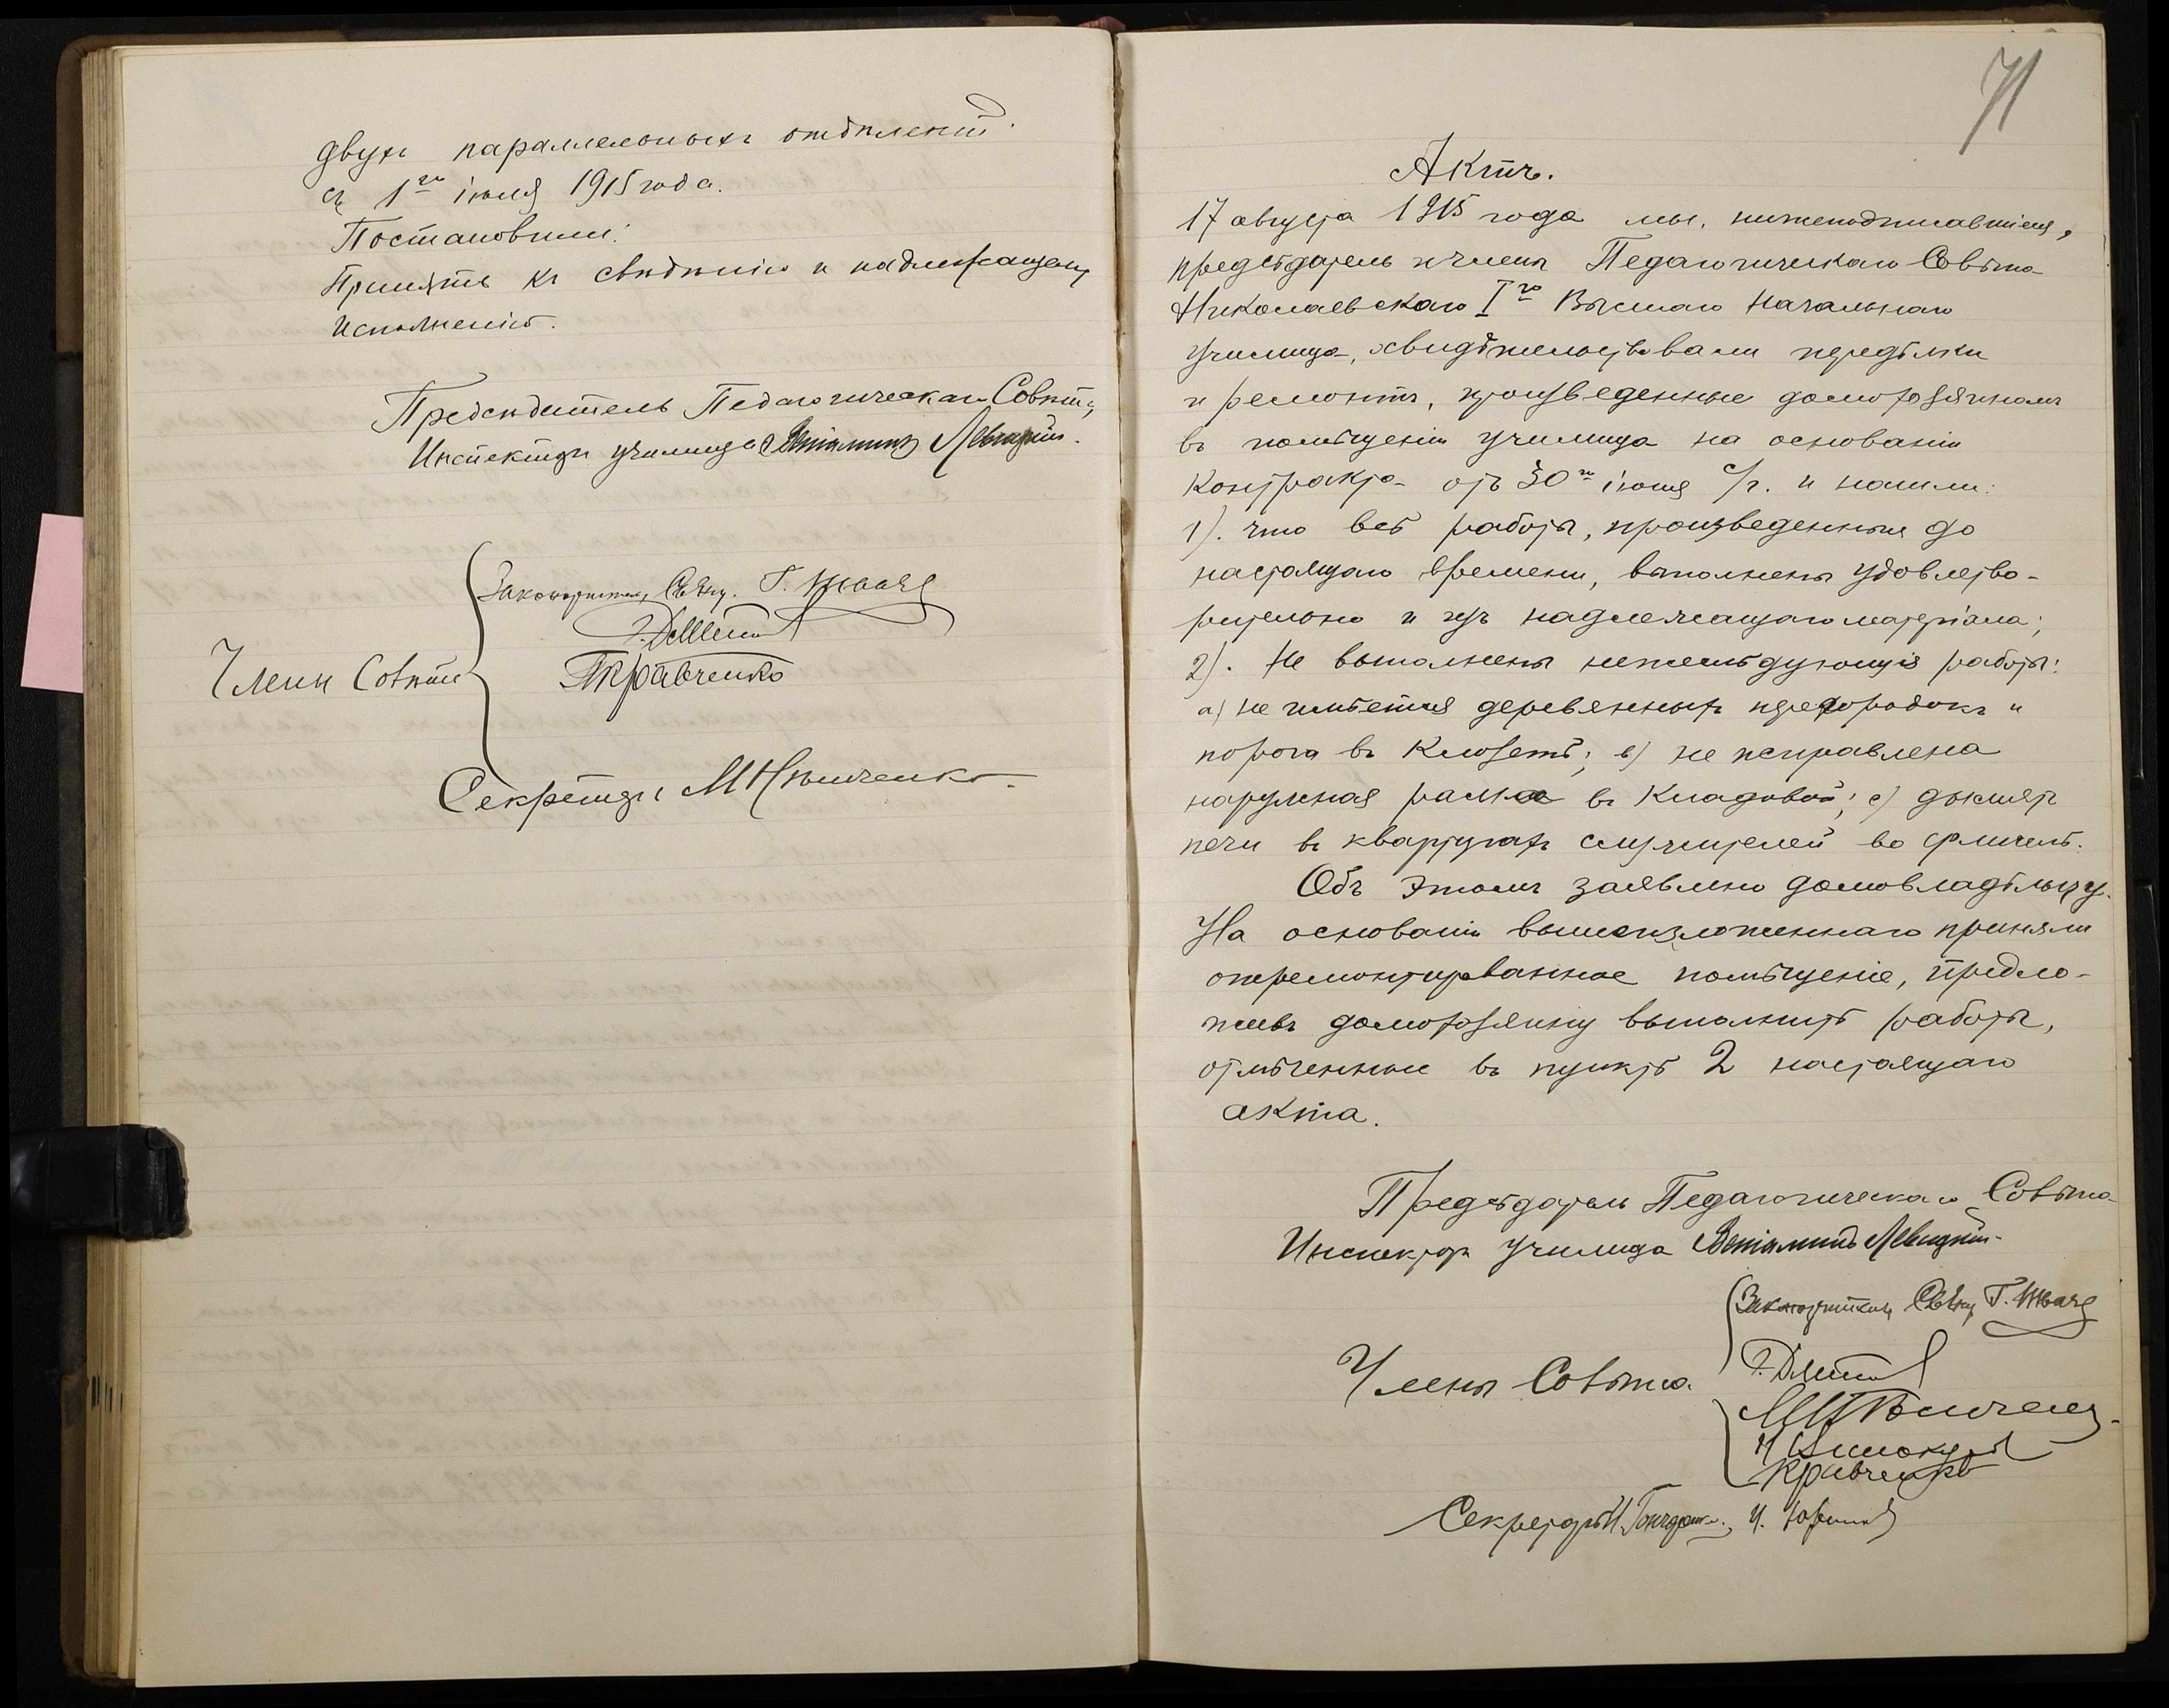 двухъ параллельныхъ отдѣленій
съ 1го іюля 1915 года.
Постановили:
Принять къ свѣдѣнію и надлежащему
исполненію.
Предсѣдатель Педагогическаго Совѣта,
Инспекторъ училища Веніаминъ Левицкій.
Законоучитель, Свящ. Г. Ткачъ
Кравченко
Члены Совѣта
Секретарь М
71
Актъ.
17 августа 1915 года мы, нижеподписавшіеся,
предсѣдатель и члены Педагогическаго Совѣта
Николаевскаго Iго Высшаго Начальнаго
училища, освидѣтельствовали передѣлки
и ремонтъ, произведенные домохозяиномъ
въ помѣщеніи училища на основаніи
контракта отъ 30го іюня с/г. и нашли:
1). что всѣ работы, произведенныя до
настоящаго времени, выполнены удовлетво-
рительно и изъ надлежащаго матеріала;
2). Не выполнены нижеслѣдующія работы:
а) не имѣется деревянныхъ перегородокъ и
порога въ клозетѣ; в) не исправлена
наружная рама въ кладовой; с) дымятъ
печи въ квартирахъ служителей во флигелѣ.
Объ этомъ заявлено домовладѣльцу.
На основаніи вышеизложеннаго приняли
отремонтированное помѣщеніе, предло-
живъ домохозяину выполнить работы,
отмѣченные въ пунктѣ 2 настоящаго
акта.
Предсѣдатель Педагогическаго Совѣта
Инспекторъ училища Веніаминъ Левицкій.
Законоучитель, Свящ. Г. Ткачъ
Члены Совѣта
Кравченко
Секретарь